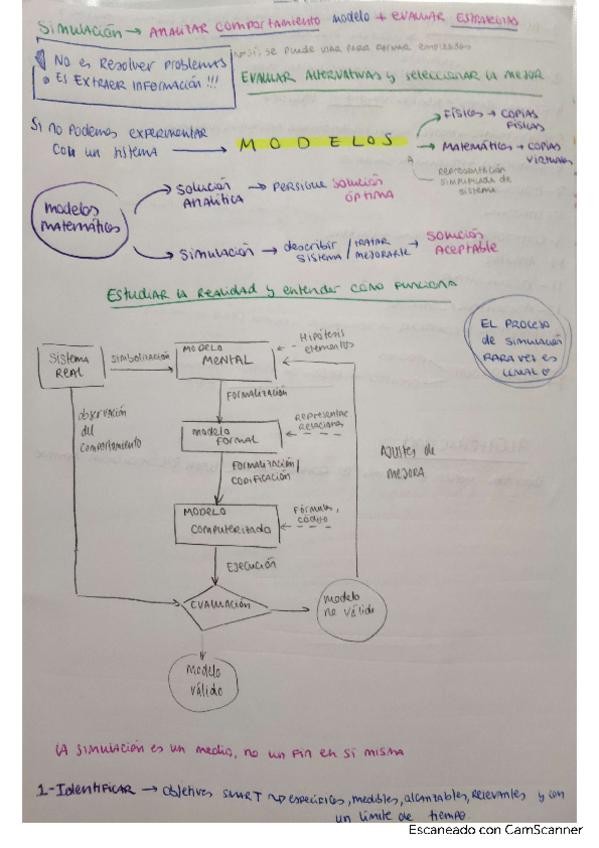 Simulación → ANALIZAR COMPORTAMIENTO modelo + EVALUAR ESTRATEGIAS
No es Resolver problemas
Es EXTRAER INFORMACIÓN !!!
se puede usar para formar empleados
EVALUAR ALTERNATIVAS y seleccionar LA MEJOR
Si no podemos experimentar
con un sistema → MODELOS
Físicos → COPIAS
FÍSICAS
Matemáticos → COPIAS
VIRTUALES
representación
simplificada de
sistema
modelos
matemáticos
SOLUCIÓN
ANALÍTICA → PERSIGUE SOLUCIÓN
ÓPTIMA
Simulación → describir
SISTEMA / TRATAR
MEJORARLE → SOLUCIÓN
ACEPTABLE
ESTUDIAR LA REALIDAD y entender cómo funciona
EL PROCESO
de SIMULACIÓN
RARA VEZ ES
LINEAL
Sistema
REAL
SIMBOLIZACIÓN
MODELO
MENTAL
Hipótesis
elementos
FORMALIZACIÓN
observación
del
comportamiento
modelo
FORMAL
Representar
Relaciones
FORMALIZACIÓN/
CODIFICACIÓN
AJUSTES de
MEJORA
MODELO
COMPUTERIZADO
Fórmulas,
código
EJECUCIÓN
EVALUACIÓN
modelo
no válido
Modelo
válido
LA SIMULACIÓN ES un medio, no un FIN en SÍ MISMA
1-Identificar → objetivos SMART → específicos, medibles, alcanzables, relevantes y con
un límite de tiempo.
Escaneado con CamScanner